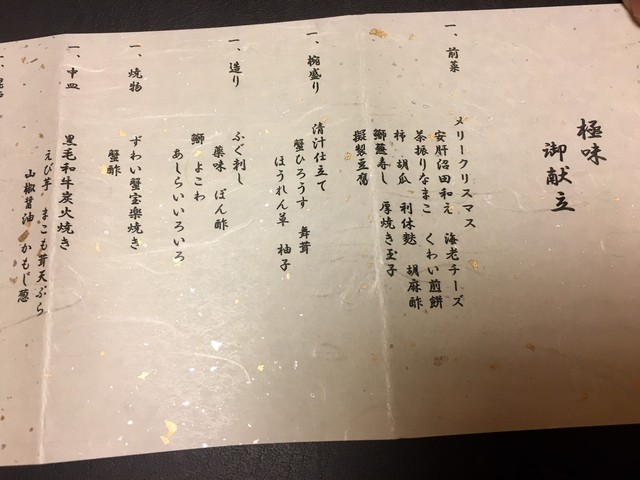 極味
御献立
一、前菜
メリークリスマス
安肝沼田和え 海老チーズ
茶振りなまこ くわい煎餅
柿 胡瓜 利休麩 胡麻酢
鰤蕪寿し 厚焼き玉子
擬製豆腐
一、椀盛り
清汁仕立て
蟹ひろうす 舞茸
ほうれん草 柚子
一、造り
ふぐ刺し
薬味 ぽん酢
鰤 よこわ
あしらいいろいろ
一、焼物
ずわい蟹宝楽焼き
蟹酢
一、中皿
黒毛和牛炭火焼き
えび芋 まこも茸天ぷら
山椒醤油 かもじ葱
一、